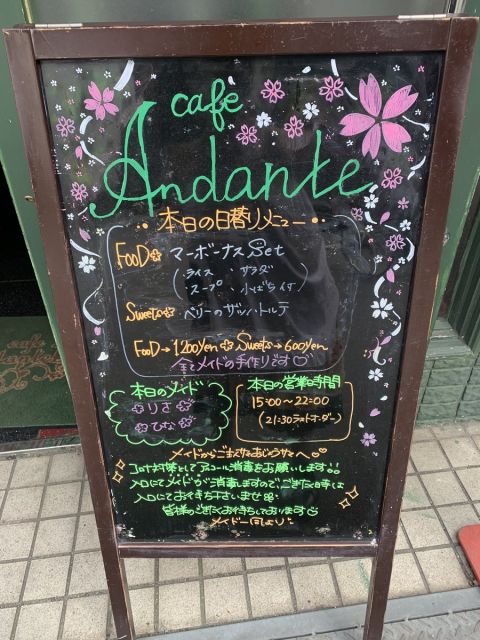 café
Andante
本日の日替りメニュー
FOOD マーボーナス Set
(ライス、サラダ
スープ、小ばち付)
Sweets ベリーのザッハトルテ
FOOD→1200yen Sweets→600yen
全てメイドの手作りです♡
本日のメイド
りさ
ひな
本日の営業時間
15:00~22:00
(21:30ラストオーダー)
メイドからご主人さまおじょうさまへ♡♡
コロナ対策としてアルコール消毒をお願いします!!
入口にてメイドが消毒しますので、ごきたく時は
入口にておまち下さいませ
皆様のごきたくおまちしております
メイド一同より
cafe